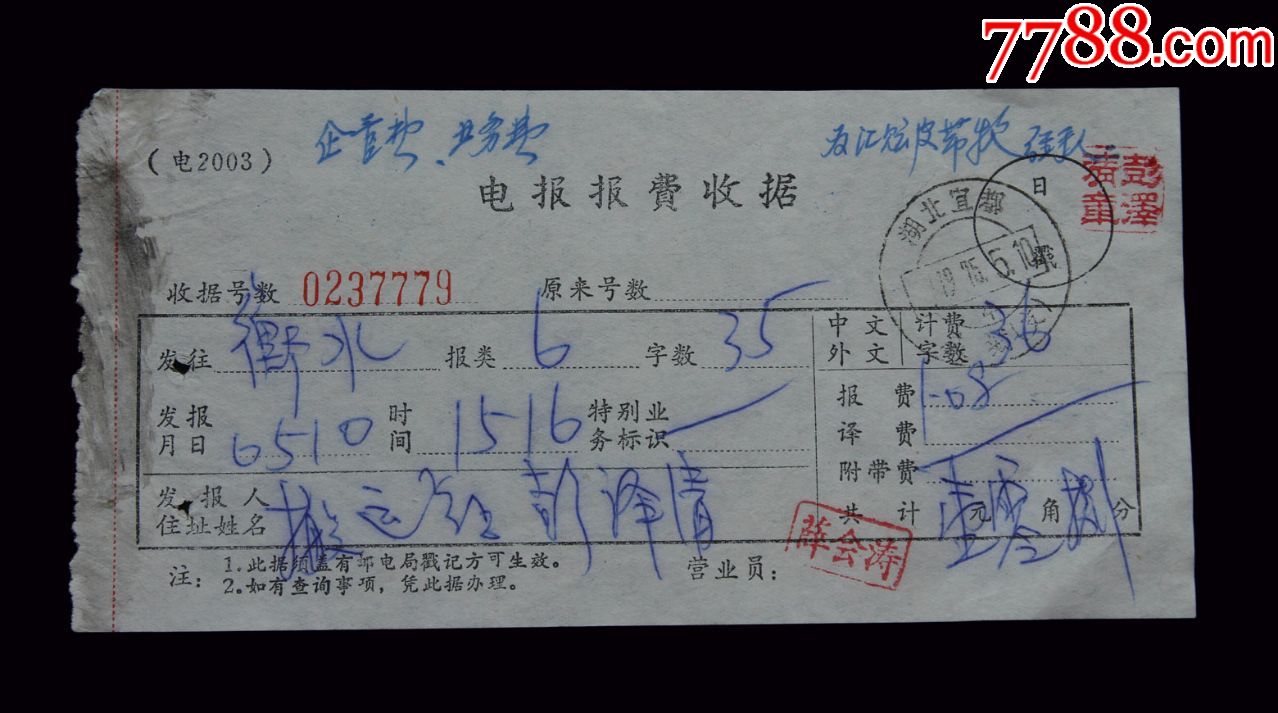 7788.com
企管费、业务费
(电2003)
电报报費收据
日
戳
彭泽清章
湖北宜
收据号数 0237779 原来号数
发往 衡水 报类 6 字数 35
中文 外文 计费字数 36
发报月日 0510 时间 1516 特别业务标识
报费 1-08
译费
附带费
发报人住址姓名 搬运 彭泽清
共计 壹元零角捌分
注: 1.此据须盖有邮电局戳记方可生效。
2.如有查询事项，凭此据办理。
营业员: 薛会涛